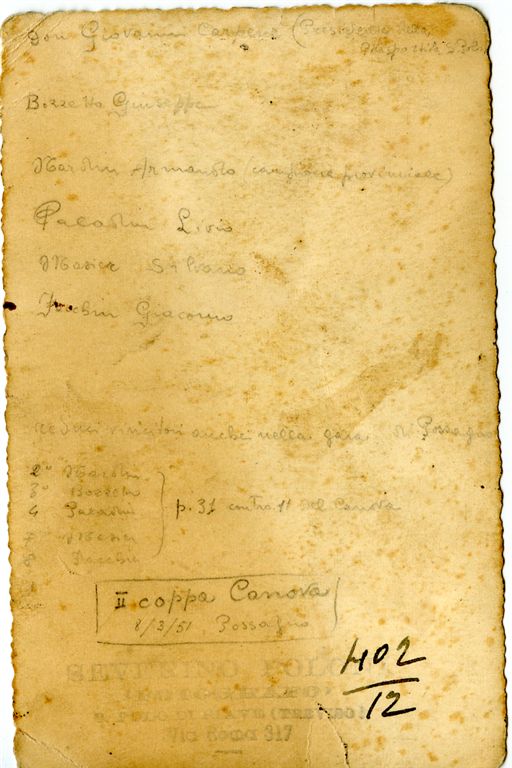 Don Giovanni (Presidente della
Bozzetto Giuseppe
Nardin Armando (campione provinciale)
Paladin Livio
Masier Silvano
Giacomo
reduci vincitori anche nella gara di Possagno
2° Nardin
3° Bozzetto
4 Paladin
7 Masier
8
p. 31 contro 11 del Canova
II coppa Canova
8/3/51 Possagno
SEVERINO
FOTOGRAFO
S. POLO DI PIAVE (TREVISO)
Via Roma 317
402
12